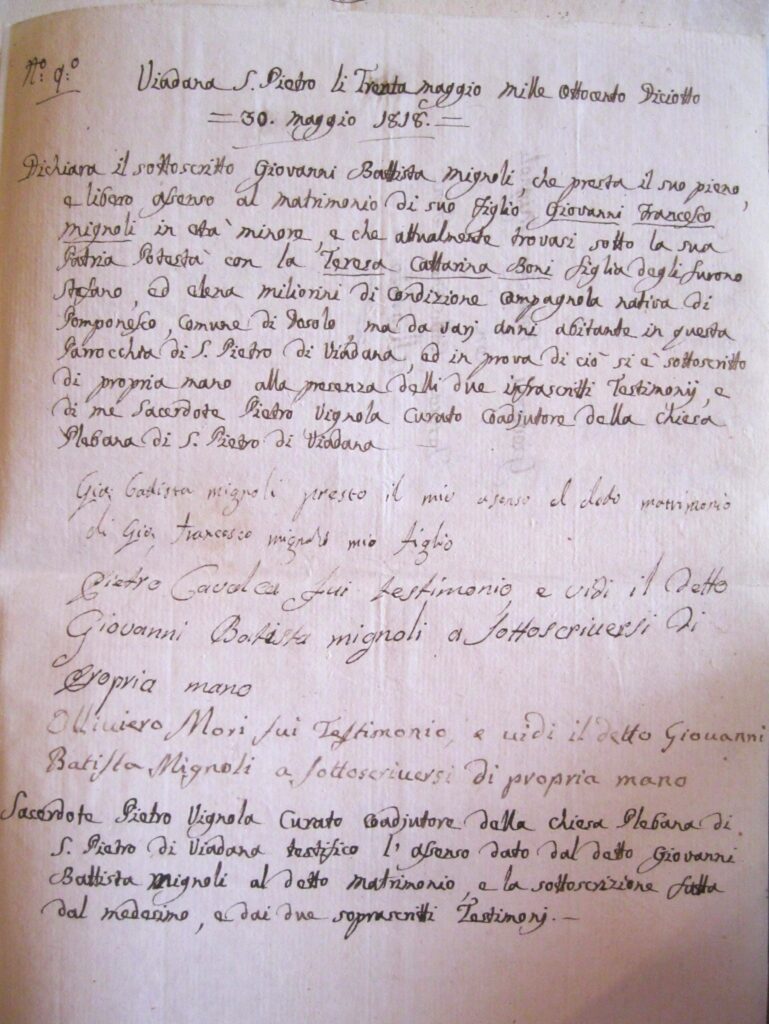 N.º 9.º
Viadana S. Pietro li Trenta maggio mille Ottocento Diciotto
= 30. maggio 1818. =
Dichiara il sottoscritto Giovanni Battista mignoli, che presta il suo pieno,
e libero assenso al matrimonio di suo figlio Giovanni Francesco
mignoli in età minore, e che attualmente trovasi sotto la sua
Patria Potestà con la Teresa Cattarina Boni figlia degli furono
Stefano, ed elena miliorini di condizione campagnola nativa di
Pomponesco, Comune di Dosolo, ma da varj anni abitante in questa
Parrocchia di S. Pietro di Viadana, ed in prova di ciò si è sottoscritto
di propria mano alla presenza delli due infrascritti Testimonij, e
di me Sacerdote Pietro Vignola Curato Coadjutore della chiesa
Plebana di S. Pietro di Viadana
Gio: Batista mignoli presto il mio asenso al deto matrimonio
di Gio: Francesco mignoli mio figlio
Pietro Cavalca fui testimonio, e vidi il detto
Giovanni Batista mignoli a sottoscriversi di
Propria mano
Olliviero Mori fui Testimonio, e vidi il detto Giovanni
Batista Mignoli a sottoscriversi di propria mano
Sacerdote Pietro Vignola Curato Coadjutore della chiesa Plebana di
S. Pietro di Viadana testifico l'assenso dato dal detto Giovanni
Battista Mignoli al detto matrimonio, e la sottoscrizione fatta
dal medesimo, e dai due soprascritti Testimonj. —